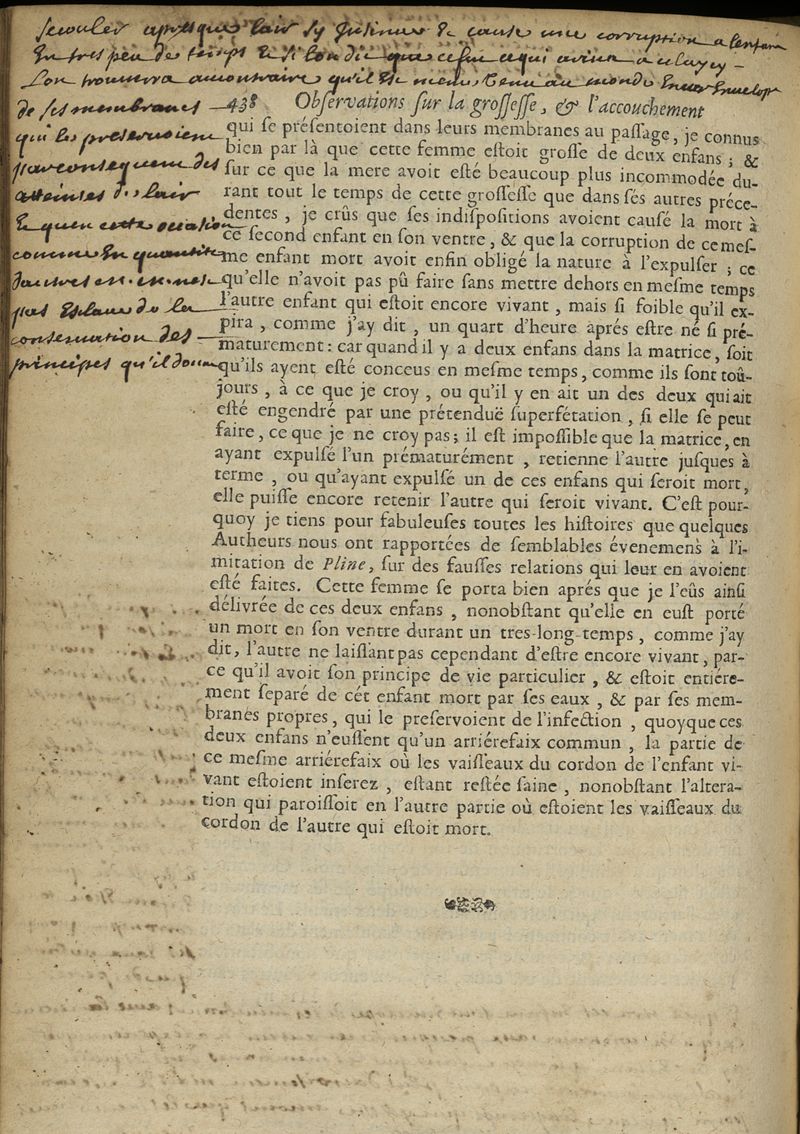 apres quoy l'air s'y & cause une corruption a l'enfant
En tres peu de temps & si l'on dit que
L'on trouvera au contraire qu'il est venu au monde
de ses membranes
438 Obſervations ſur la groſſeſſe, & l'accouchement
qui le preservoient
par consequent des
atteintes de l'air
& qu'en cette occasion
comme en quantité
d'autres
pas de la
conservation des
principes qu'il donne
qui ſe préſentoient dans leurs membranes au paſſage, je connus
bien par là que cette femme eſtoit groſſe de deux enfans ; &
ſur ce que la mere avoit eſté beaucoup plus incommodée du-
rant tout le temps de cette groſſeſſe que dans ſés autres préce-
dentes, je crûs que ſes indiſpoſitions avoient cauſé la mort à
ce ſecond enfant en ſon ventre, & que la corruption de ce meſ-
me enfant mort avoit enfin obligé la nature à l'expulſer ; ce
qu'elle n'avoit pas pû faire ſans mettre dehors en meſme temps
l'autre enfant qui eſtoit encore vivant, mais ſi foible qu'il ex-
pira, comme j'ay dit, un quart d'heure aprés eſtre né ſi pré-
maturement : car quand il y a deux enfans dans la matrice, ſoit
qu'ils ayent eſté conceus en meſme temps, comme ils ſont toû-
jours, à ce que je croy, ou qu'il y en ait un des deux qui ait
eſté engendré par une prétenduë ſuperfétation, ſi elle ſe peut
faire, ce que je ne croy pas ; il eſt impoſſible que la matrice, en
ayant expulſé l'un prématurément, retienne l'autre juſques à
terme, ou qu'ayant expulſé un de ces enfans qui ſeroit mort,
elle puiſſe encore retenir l'autre qui ſeroit vivant. C'eſt pour-
quoy je tiens pour fabuleuſes toutes les hiſtoires que quelques
Autheurs nous ont rapportées de ſemblables évenemens à l'i-
mitation de Pline, ſur des fauſſes relations qui leur en avoient
eſté faites. Cette femme ſe porta bien aprés que je l'eûs ainſi
délivrée de ces deux enfans, nonobſtant qu'elle en euſt porté
un mort en ſon ventre durant un tres-long-temps, comme j'ay
dit, l'autre ne laiſſant pas cependant d'eſtre encore vivant, par-
ce qu'il avoit ſon principe de vie particulier, & eſtoit entiére-
ment ſeparé de cét enfant mort par ſes eaux, & par ſes mem-
branes propres, qui le preſervoient de l'infection, quoyque ces
deux enfans n'euſſent qu'un arriérefaix commun, la partie de
ce meſme arriérefaix où les vaiſſeaux du cordon de l'enfant vi-
vant eſtoient inſerez, eſtant reſtée ſaine, nonobſtant l'altera-
tion qui paroiſſoit en l'autre partie où eſtoient les vaiſſeaux du
cordon de l'autre qui eſtoit mort.